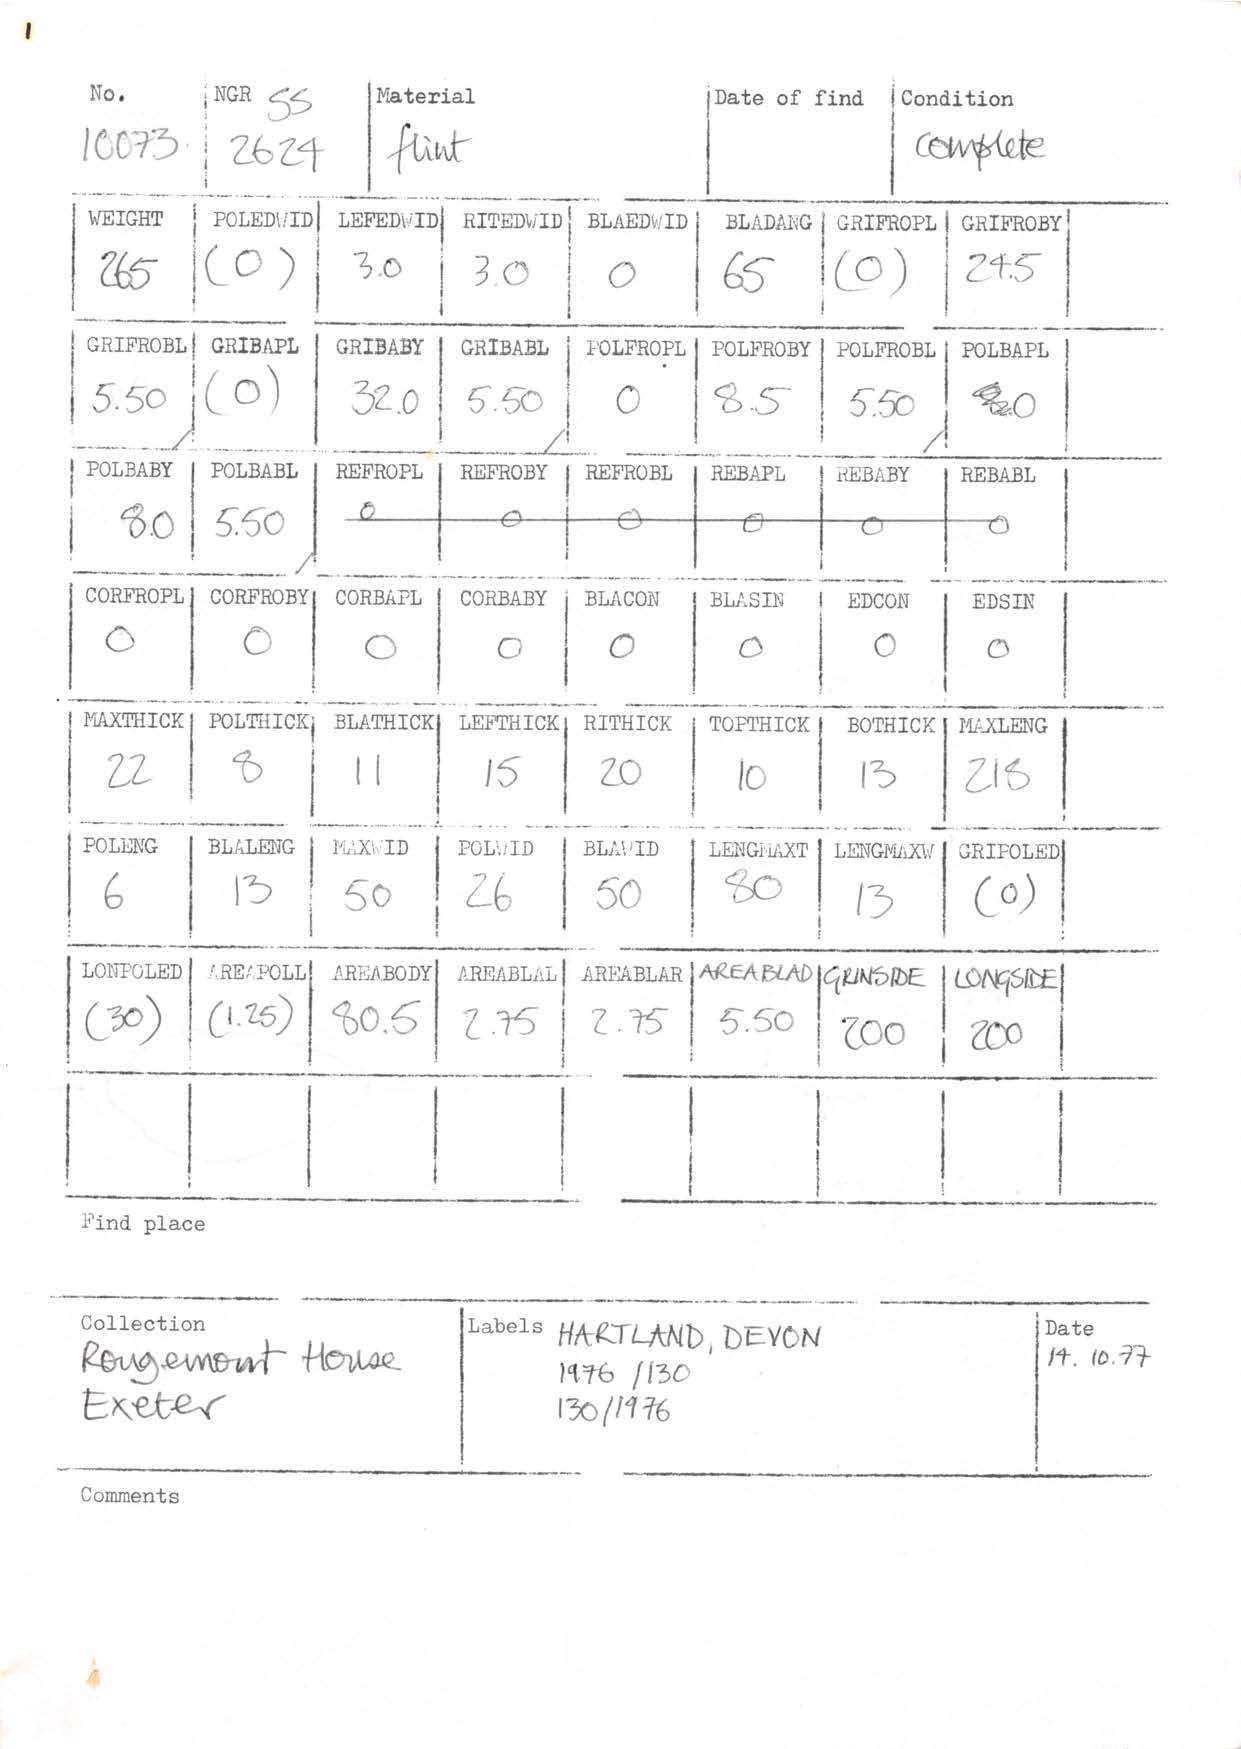 1
No. NGR SS Material Date of find Condition
10073 2624 flint complete
WEIGHT POLEDWID LEFEDWID RITEDWID BLAEDWID BLADANG GRIFROPL GRIFROBY
265 (0) 3.0 3.0 0 65 (0) 24.5
GRIFROBL GRIBAPL GRIBABY GRIBABL POLFROPL POLFROBY POLFROBL POLBAPL
5.50 (0) 32.0 5.50 0 8.5 5.50 0
POLBABY POLBABL REFROPL REFROBY REFROBL REBAPL REBABY REBABL
8.0 5.50 0 0 0 0 0 0
CORFROPL CORFROBY CORBAPL CORBABY BLACON BLASIN EDCON EDSIN
0 0 0 0 0 0 0 0
MAXTHICK POLTHICK BLATHICK LEFTHICK RITHICK TOPTHICK BOTHICK MAXLENG
22 8 11 15 20 10 13 218
POLENG BLALENG MAXWID POLWID BLAWID LENGMAXT LENGMAXW GRIPOLED
6 13 50 26 50 80 13 (0)
LONPOLED AREAPOLL AREABODY AREABLAL AREABLAR AREABLAD GRINSIDE LONGSIDE
(30) (1.25) 80.5 2.75 2.75 5.50 200 200
Find place
Collection Labels HARTLAND, DEVON Date
Rougemont House 1976 /130 14. 10.77
Exeter 130/1976
Comments